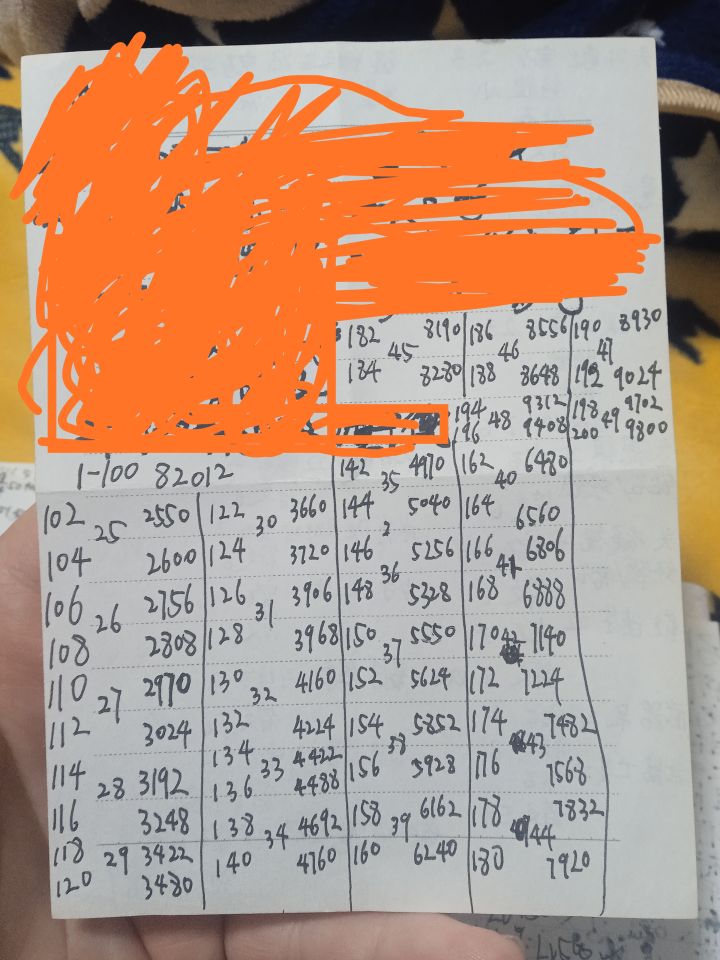 182 45 8190 186 46 8556 190 47 8930
184 8280 188 8648 192 9024
194 48 9312 198 49 9702
196 9408 200 9800
1-100 82012 142 35 4970 162 40 6480
102 25 2550 122 30 3660 144 5040 164 6560
104 2600 124 3720 146 36 5256 166 41 6806
106 26 2756 126 31 3906 148 5328 168 6888
108 2808 128 3968 150 37 5550 170 42 7140
110 27 2970 130 32 4160 152 5624 172 7224
112 3024 132 4224 154 38 5852 174 43 7482
114 28 3192 134 33 4422 156 5928 176 7568
116 3248 136 4488 158 39 6162 178 44 7832
118 29 3422 138 34 4692 160 6240 180 7920
120 3480 140 4760